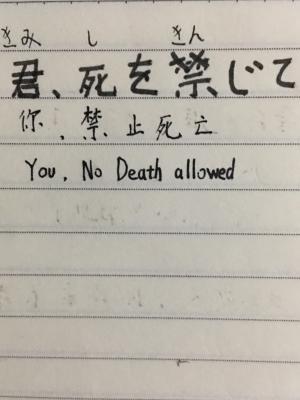 きみ し きん
君、死を禁じて
你,禁止死亡
You, No Death allowed